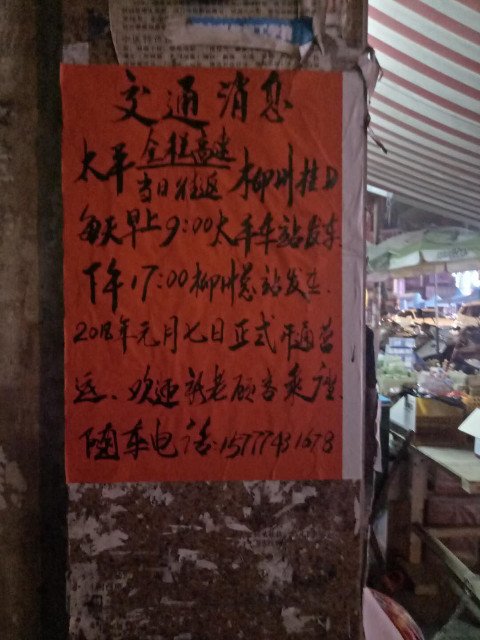 交通消息
太平全程高速柳州桂口
当日往返
每天早上9:00太平车站发车.
下午17:00柳州总站发车.
2018年元月七日正式开通营
运、欢迎新老顾客乘座.
随车电话:15777431678